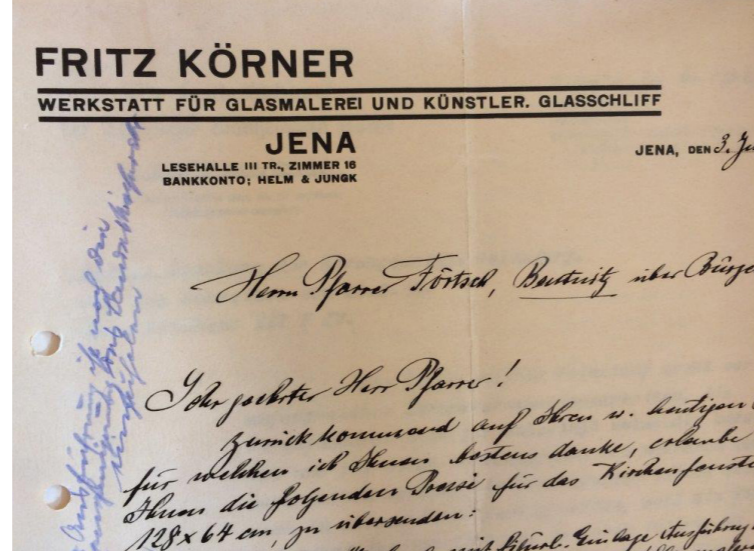 FRITZ KÖRNER
WERKSTATT FÜR GLASMALEREI UND KÜNSTLER. GLASSCHLIFF
JENA
LESEHALLE III TR., ZIMMER 16
BANKKONTO; HELM & JUNGK
JENA, DEN 3. Ju
Herrn Pfarrer Förtsch, Beutnitz über Bürge
Sehr geehrter Herr Pfarrer!
Zurückkommend auf Ihren w. heutigen
für welchen ich Ihnen bestens danke, erlaube
Ihnen die folgenden Preise für das Kirchenfenste
128 x 64 cm, zu übersenden:
mit Einlage Ausführung
Ausführung ist noch die